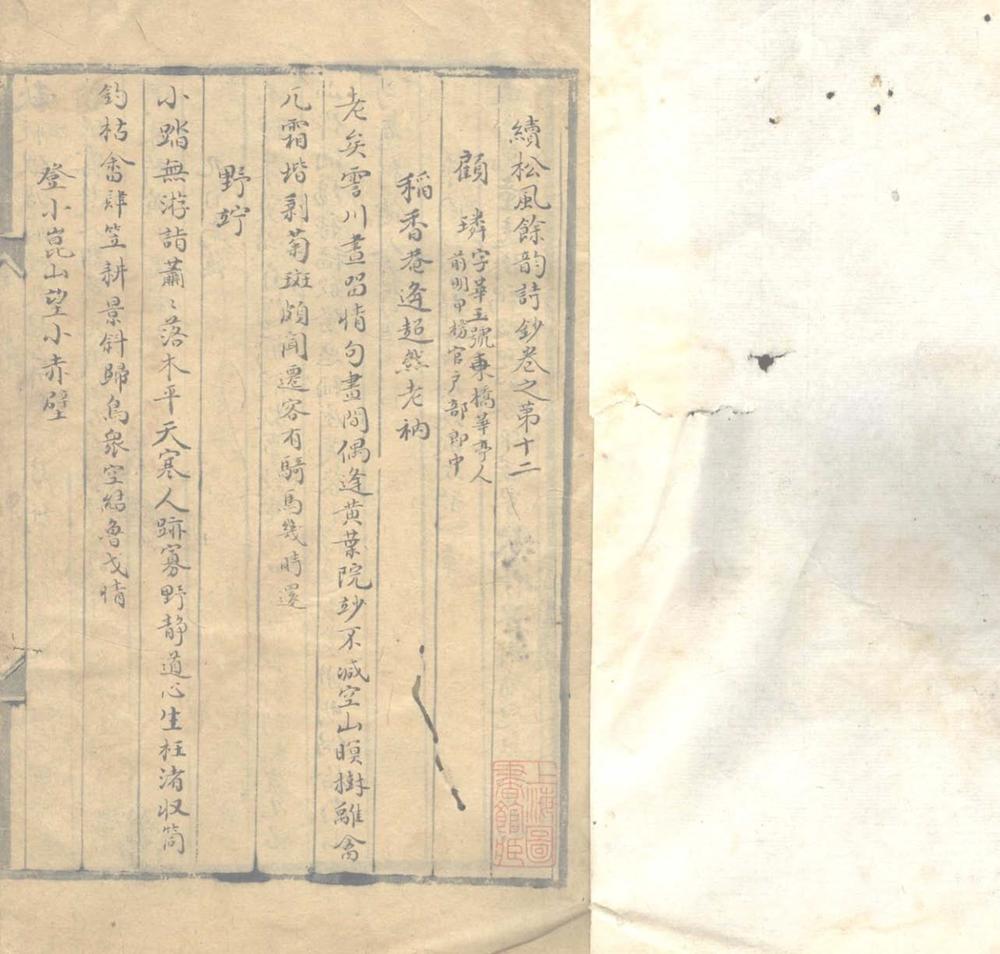 續松風餘韵詩鈔卷之第十二
顧璘字華玉號東橋華亭人
前明甲榜官戶部郎中
稻香菴逢超然老衲
老矣雪川畫留情句畫間偶逢黃葉院妙不減空山暝樹離禽
几霜堦剩菊斑頗聞遷客有騎馬幾時還
野竚
小踏無游詣蕭〻落木平天寒人跡寡野靜道心生枉渚収筒
釣枯畬肆笠耕景斜歸鳥衆空結魯戈情
登小崑山望小赤壁
上海圖書館藏